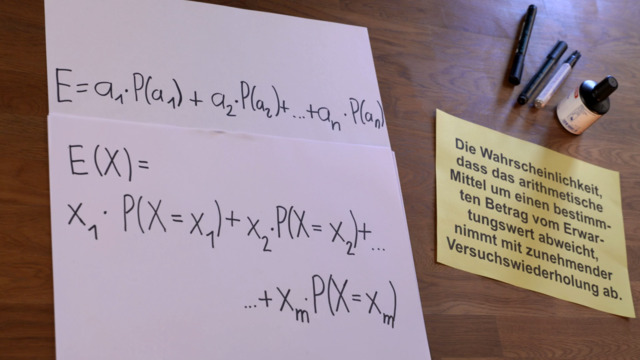 E = a₁·P(a₁) + a₂·P(a₂)+...+aₙ·P(aₙ)
E(X)=
x₁· P(X = x₁)+x₂·P(X= x₂)+...
...+xₘ·P(X=xₘ)
Die Wahrscheinlichkeit,
dass das arithmetische
Mittel um einen bestimm-
ten Betrag vom Erwar-
tungswert abweicht,
nimmt mit zunehmender
Versuchswiederholung ab.